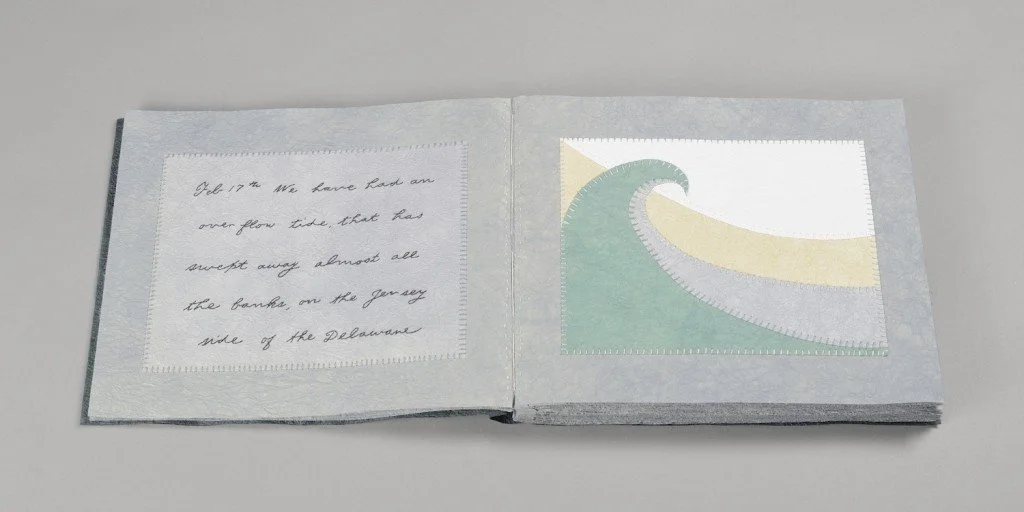 Feb 17th We have had an
over flow tide, that has
swept away almost all
the banks, on the Jersey
side of the Delaware